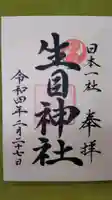 日本一社
奉拝
生目神社
令和四年二月二十七日